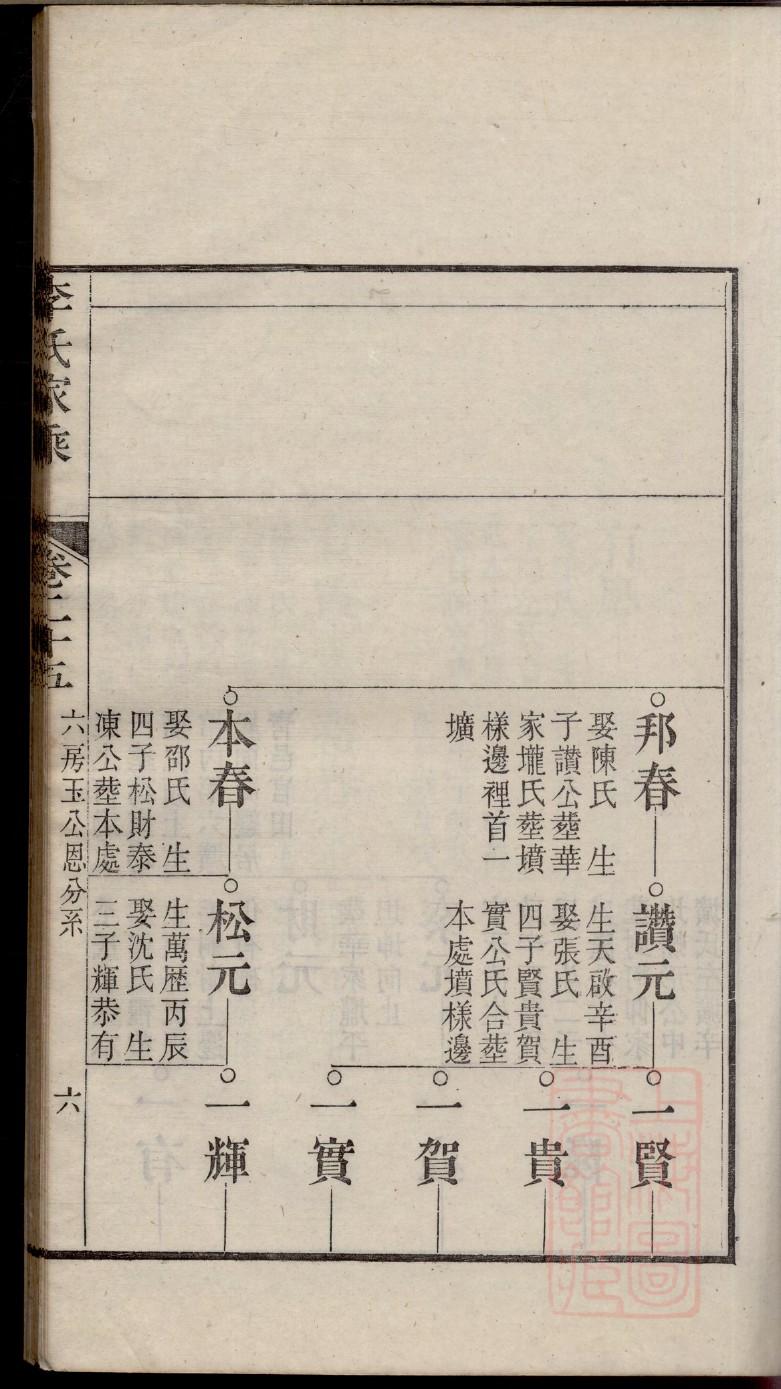 邦春
娶陳氏 生
子讚公塟華
家壠氏塟墳
樣邊裡首一
壙
讚元
生天啟辛酉
娶張氏 生
四子賢貴賀
實公氏合塟
本處墳樣邊
一賢
一貴
一賀
一實
本春
娶邵氏 生
四子松財泰
凍公塟本處
松元
生萬歴丙辰
娶沈氏 生
三子輝恭有
一輝
李氏家乘
卷二十五
六房玉公恩分系
六
上海圖書館藏